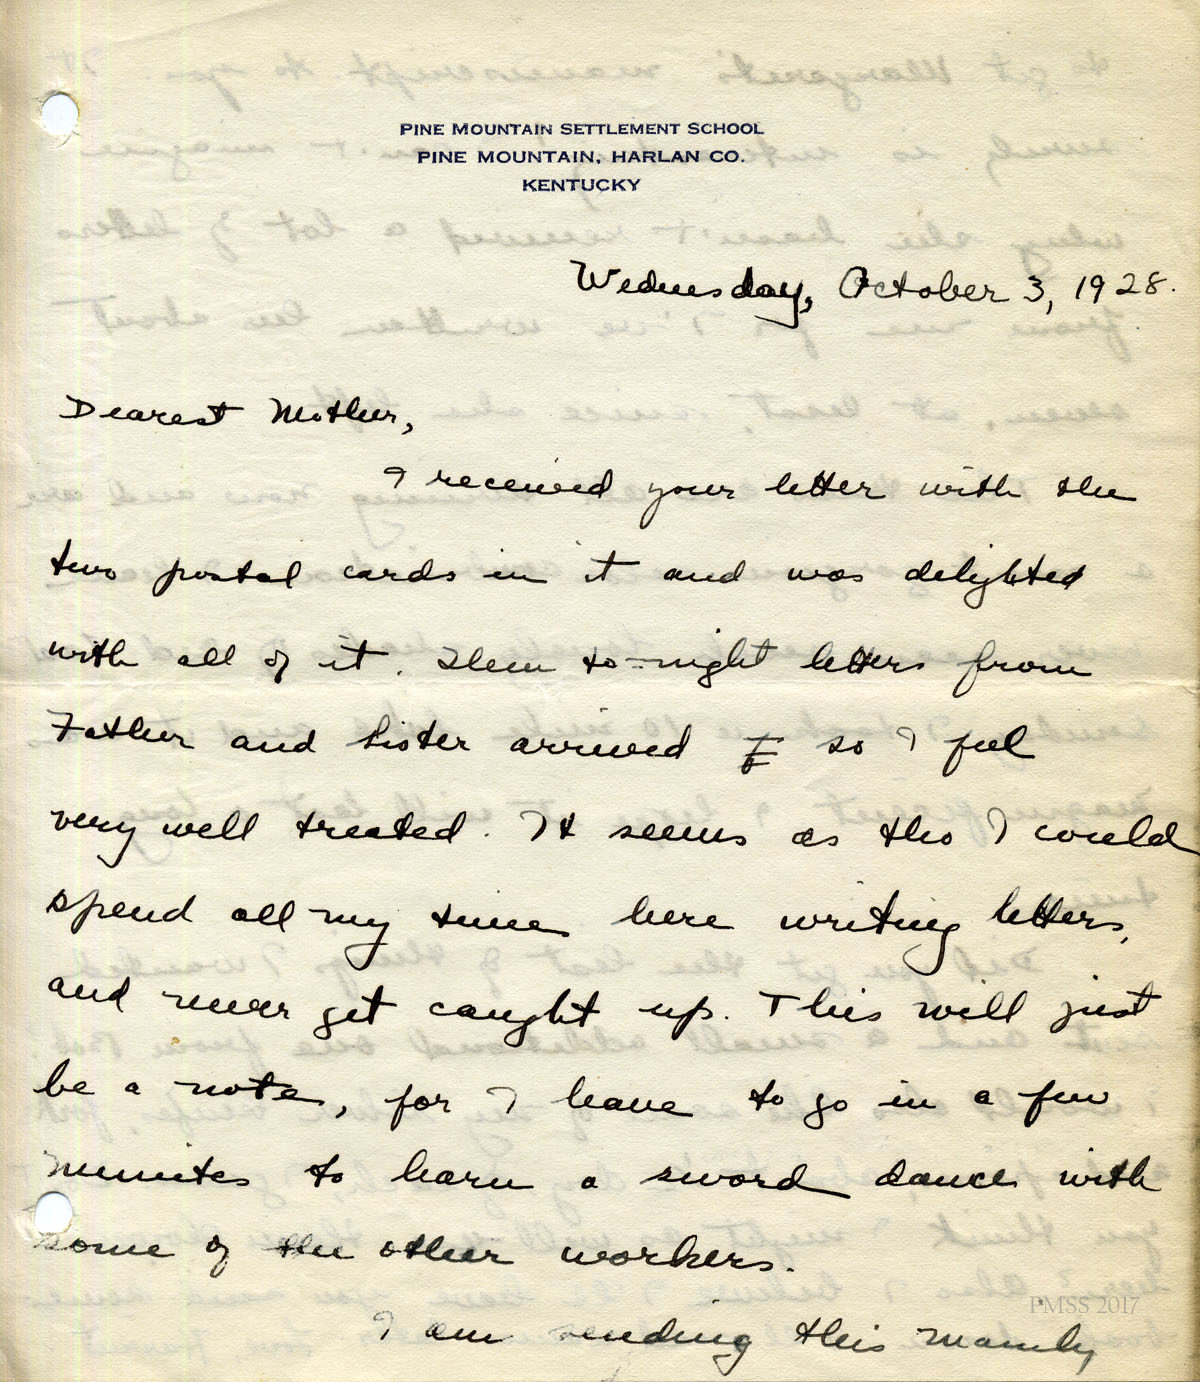 PINE MOUNTAIN SETTLEMENT SCHOOL
PINE MOUNTAIN, HARLAN CO.
KENTUCKY
Wednesday, October 3, 1928.
Dearest Mother,
I received your letter with the
two postal cards in it and was delighted
with all of it. Then to-night letters from
Father and Sister arrived so I feel
very well treated. It seems as tho I could
spend all my time here writing letters,
and never get caught up. This will just
be a note, for I have to go in a few
minutes to learn a sword dance with
some of the other workers.
I am sending this mainly
PMSS 2017